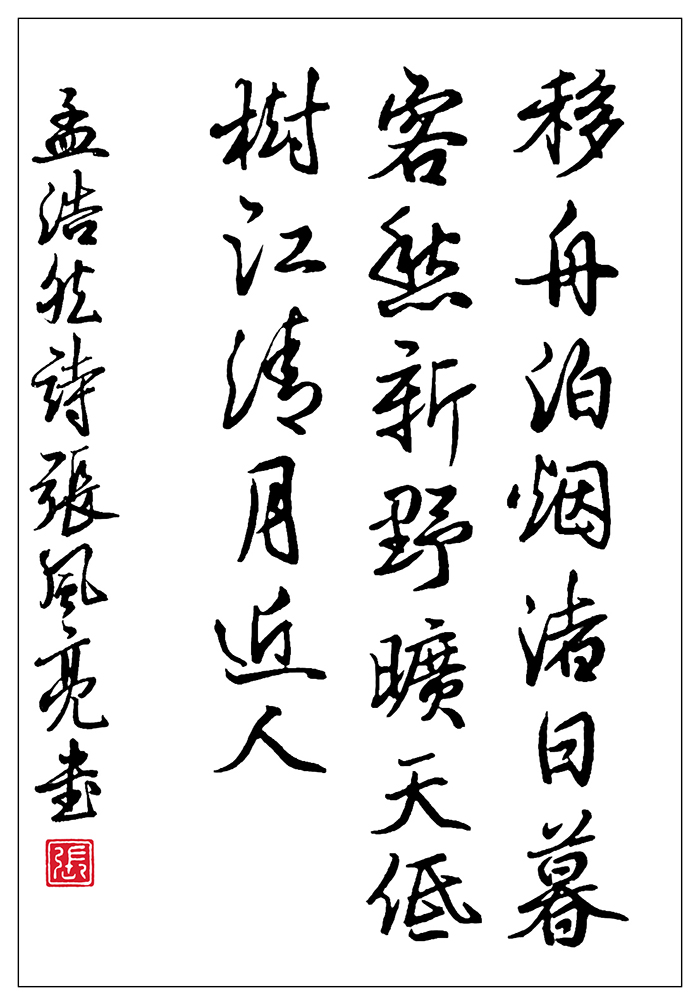 移舟泊烟渚日暮
客愁新野曠天低
樹江清月近人
孟浩然詩張風亮書
張